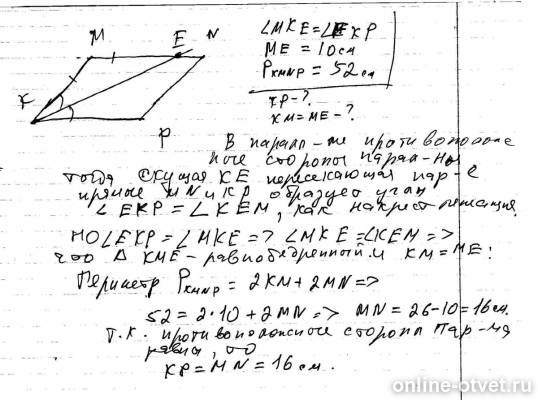 M E N
K
P
∠MKE=∠EKP
ME = 10 см
P_KMNP = 52 см
KP-?
KM=ME-?
В паралл-ме противополож
ные стороны парал-ны
Тогда секущая KE пересекающая пар-е
прямые MN и KP образует углы
∠EKP = ∠KEM, как накрест лежащие.
НО ∠EKP = ∠MKE => ∠MKE = ∠KEM =>
что Δ KME - равнобедренный и KM = ME.
Периметр P_KMNP = 2KM + 2MN =>
52 = 2·10 + 2MN => MN = 26-10 = 16 см.
Т.к. противоположные стороны пар-ма
равны, то
KP = MN = 16 см.
online-otvet.ru